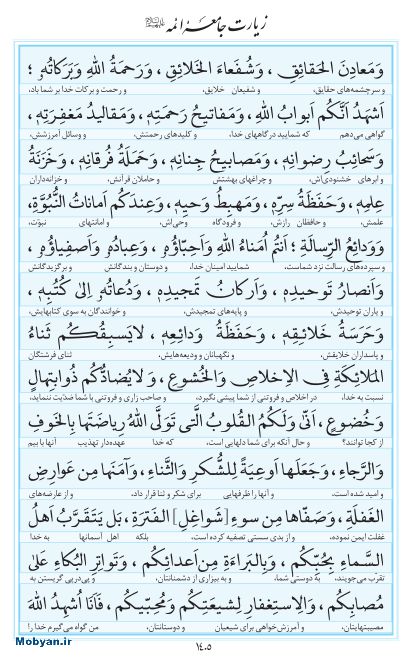 زیارت جامعۀ ائمه علیهم السلام
وَمَعادِنَ الحَقائِقِ ، وَشُفَعاءَ الخَلائِقِ ، وَرَحمَةُ اللهِ وَبَرَکاتُه ؛
و سرچشمه‌های حقایق، و شفیعان خلایق، و رحمت و برکات خدا بر شما باد،
اَشهَدُ اَنَّکُم اَبوابُ اللهِ ، وَمَفاتیحُ رَحمَتِهِ ، وَمَقالیدُ مَغفِرَتِهِ ،
گواهی می‌دهم که شمایید درگاههای خدا، و کلیدهای رحمتش، و وسائل آمرزشش،
وَسَحائِبُ رِضوانِهِ ، وَمَصابیحُ جِنانِهِ ، وَحَمَلَةُ فُرقانِهِ ، وَخَزَنَةُ
و ابرهای خشنودی‌اش، و چراغهای بهشتش و حاملان قرآنش، و خزانه‌داران
عِلمِهِ ، وَحَفَظَةُ سِرِّهِ ، وَمَهبِطُ وَحیِهِ ، وَعِندَکُم اَماناتُ النُّبُوَّةِ ،
علمش، و حافظان رازش، و فرودگاه وحی‌اش، و امانتهای نبوّت،
وَوَدائِعُ الرِّسالَةِ ؛ اَنتُم اُمَناءُ اللهِ وَاَحِبّاؤُهُ ، وَعِبادُهُ وَاَصفِیاؤُهُ ،
و سپرده‌های رسالت نزد شماست، شمایید امینان خدا، و دوستان و بندگانش و برگزیدگانش
وَاَنصارُ تَوحیدِهِ ، وَاَرکانُ تَمجیدِهِ ، وَدُعاتُهُ اِلیٰ کُتُبِهِ ،
و یاران توحیدش، و پایه‌های تمجیدش، و خوانندگان به سوی کتابهایش،
وَحَرَسَةُ خَلائِقِهِ ، وَحَفَظَةُ وَدائِعِهِ ، لایَسبِقُکُم ثَناءُ
و پاسداران خلایقش، و نگهبانان و ودیعه‌هایش، ثنای فرشتگان
المَلائِکَةِ فِی الاِخلاصِ وَالخُشوعِ ، وَلایُضادُّکُم ذُوابتِهالٍ
نسبت به خدا در اخلاص و فروتنی از شما پیشی نگیرد، و صاحب زاری و فروتنی با شما ضدّیت ننماید،
وَخُضوعٍ ، اَنّیٰ وَلَکُمُ القُلوبُ الَّتی تَوَلَّی اللهُ ریاضَتَها بِالخَوفِ
از کجا توانند؟ و حال آنکه برای شما دلهایی است، که خدا عهده‌دار تهذیب آنها با بیم
وَالرَّجاءِ ، وَجَعَلَها اَوعِیَةً لِلشُّکرِ وَالثَّناءِ ، وَآمَنَها مِن عَوارِضِ
و امید شده است، و آنها را ظرفهایی برای شکر و ثنا قرار داد، و از عارضه‌های
الغَفلَةِ ، وَصَفّاها مِن سوءِ [شَواغِلِ] الفَترَةِ ، بَل یَتَقَرَّبُ اَهلُ
غفلت ایمن نموده، و از بدی سستی تصفیه کرده است، بلکه اهل آسمانها به خدا
السَّماءِ بِحُبِّکُم ، وَبِالبَراءَةِ مِن اَعدائِکُم ، وَتَواتُرِ البُکاءِ عَلیٰ
تقرب می‌جویند، به دوستی شما، و به بیزاری از دشمنانتان، و پی‌درپی گریستن به
مُصابِکُم ، وَالاِستِغفارِ لِشیعَتِکُم وَمُحِبّیکُم ، فَاَنَا اُشهِدُ اللهَ
مصیبتهایتان، و آمرزش‌خواهی برای شیعیان و دوستانتان، من گواه می‌گیرم خدا را
۱۴۰۵
Mobyan.ir